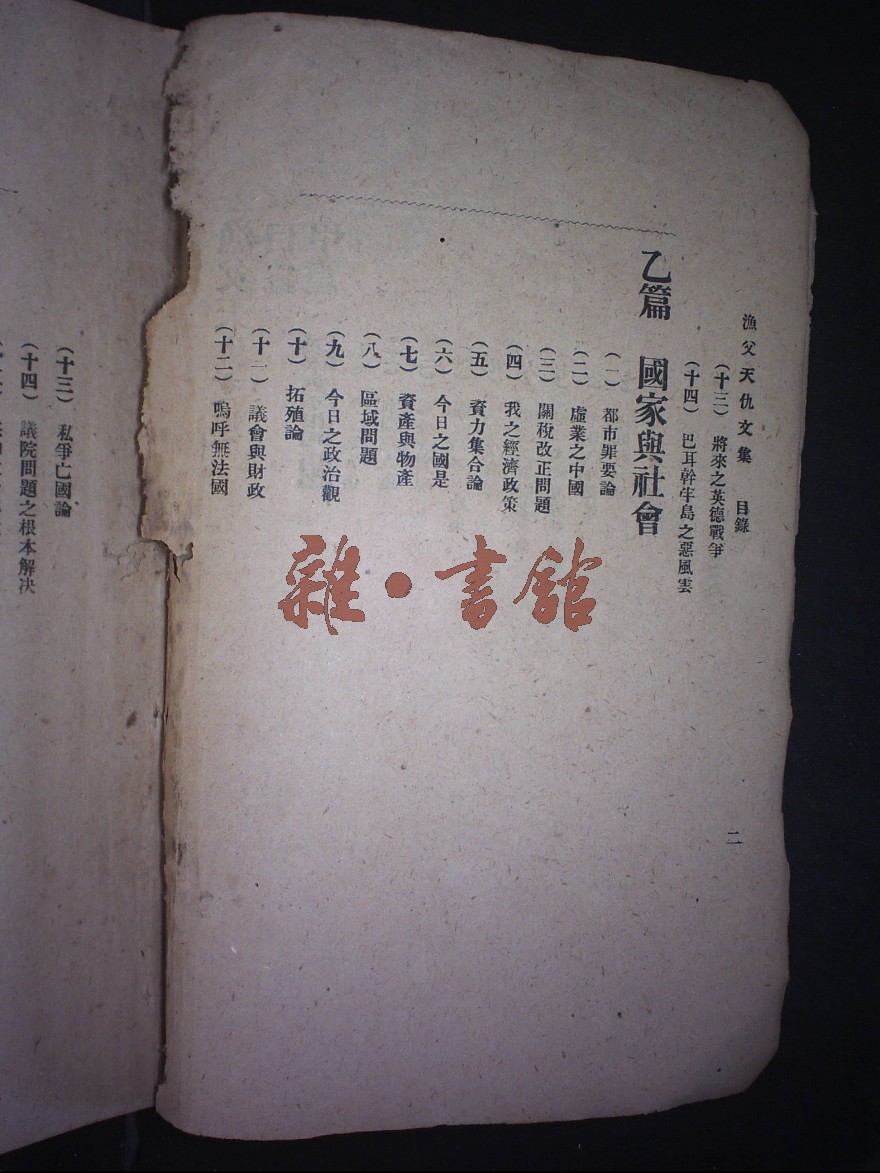 漁父天仇文集　目錄
（十三）　將來之英德戰爭
（十四）　巴耳幹半島之惡風雲
乙篇　國家與社會
（一）　都市罪要論
（二）　虛業之中國
（三）　關稅改正問題
（四）　我之經濟政策
（五）　資力集合論
（六）　今日之國是
（七）　資產與物產
（八）　區域問題
（九）　今日之政治觀
（十）　拓殖論
（十一）　議會與財政
（十二）　嗚呼無法國
二
（十三）　私爭亡國論
（十四）　議院問題之根本解决
雜·書館